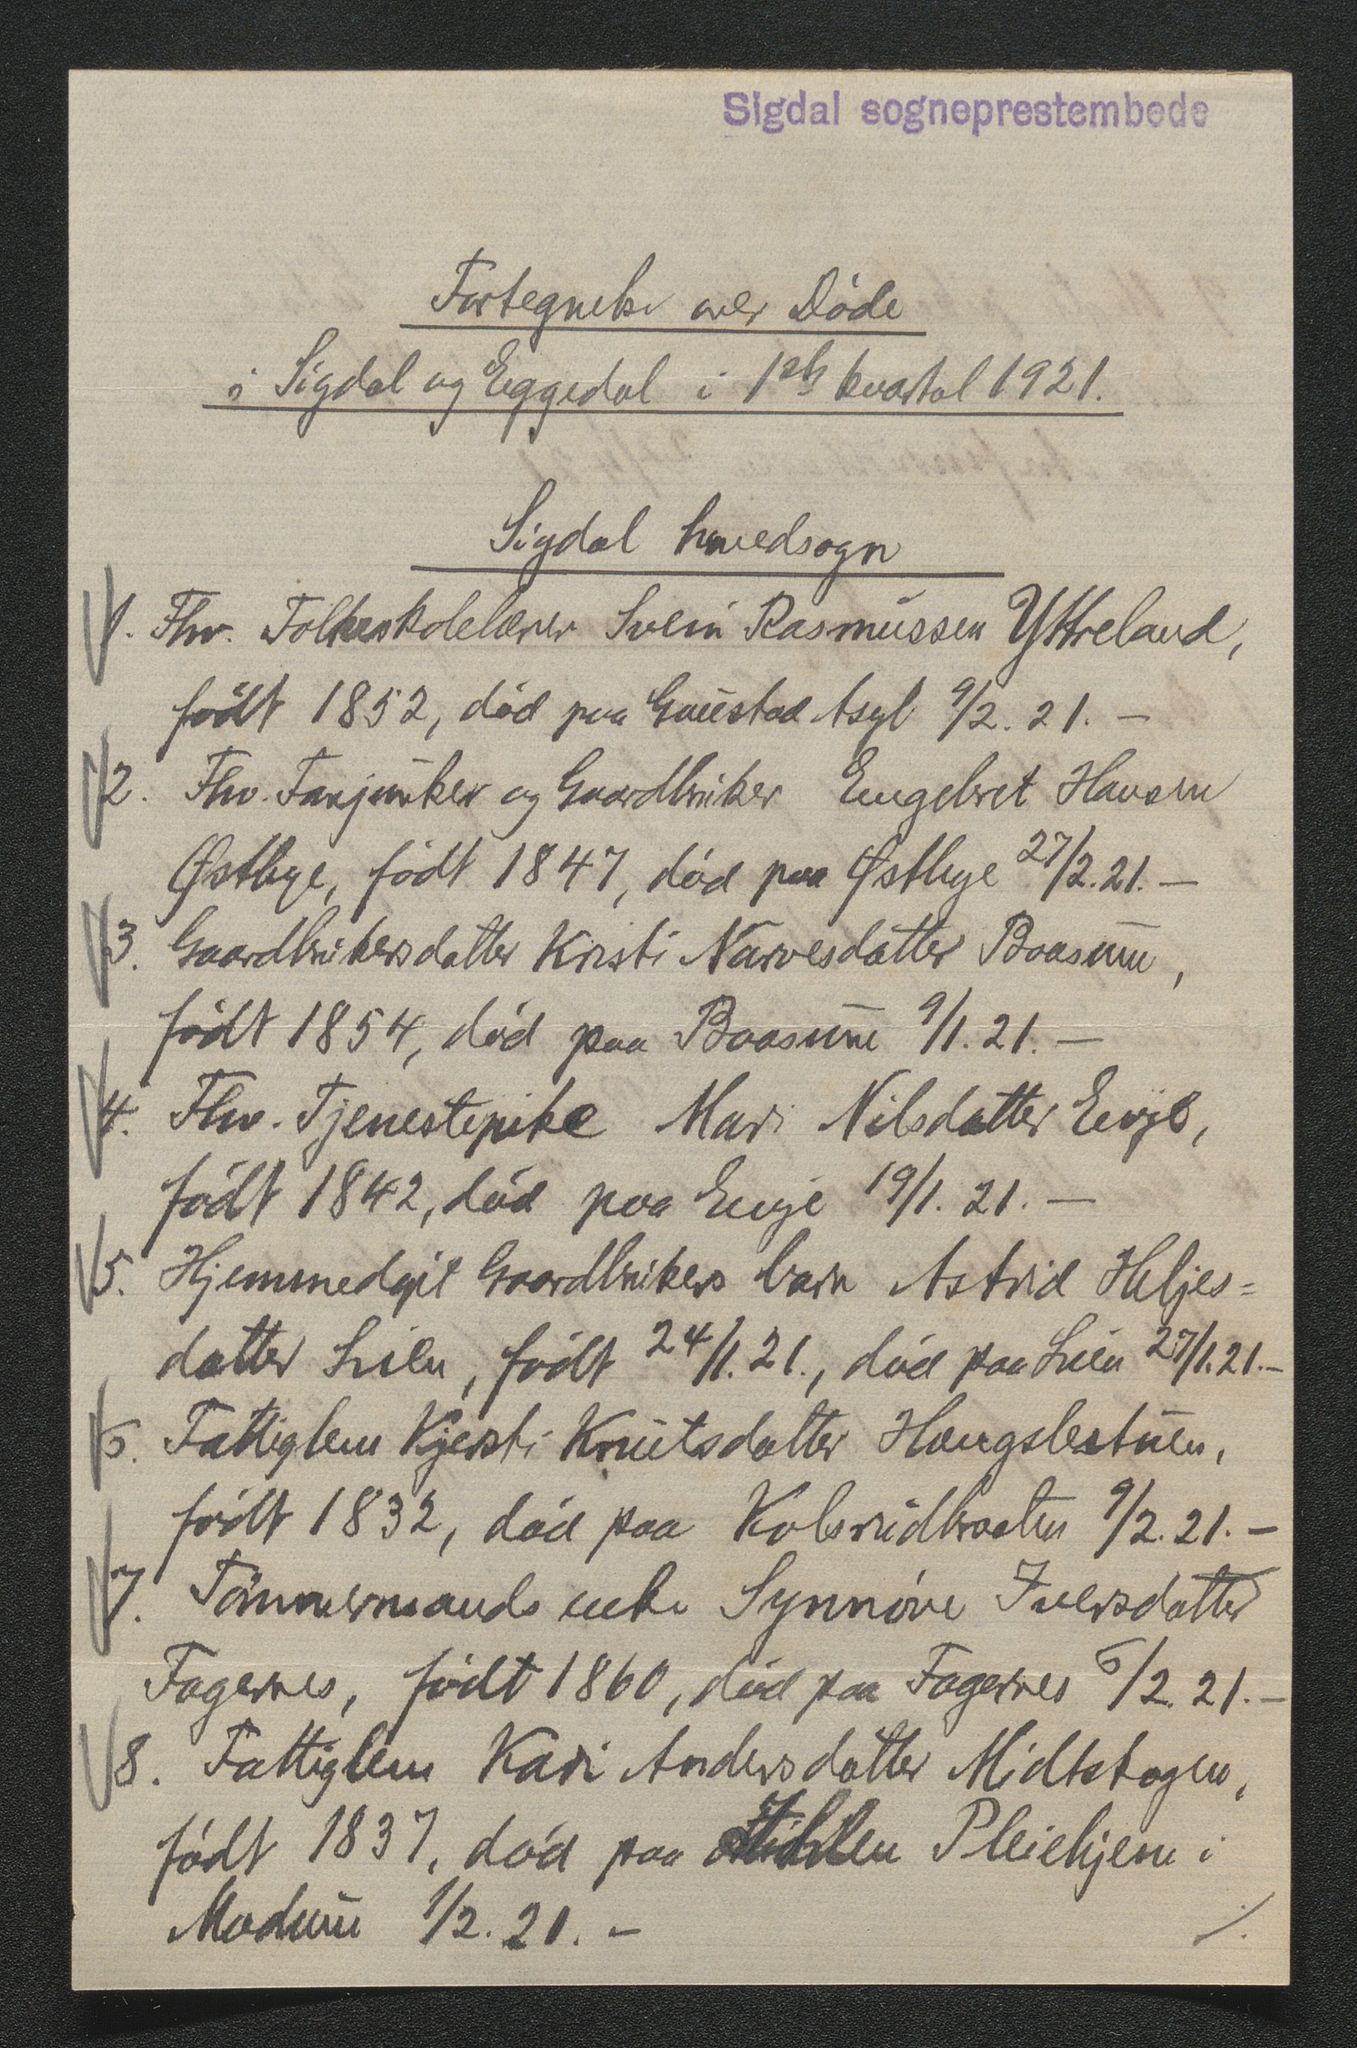 Sigdal sogneprestembede
Fortegnelse over Døde
i Sigdal og Eggedal i 1ste kvartal 1921.
Sigdal hovedsogn
1. Fhv. Folkeskolelærer Svein Rasmussen Yttreland,
født 1852, død paa Gaustad Asyl 9/2. 21. —
2. Fhv. Fanjunker og Gaardbruker Engebret Hansen
Østbye, født 1847, død paa Østbye 27/2. 21. —
3. Gaardbrukersdatter Kristi Narvesdatter Baasum,
født 1854, død paa Baasum 9/1. 21. —
4. Fhv. Tjenestepike Mari Nilsdatter Evje,
født 1842, død paa Evje 19/1. 21. —
5. Hjemmedøpt Gaardbrukers barn Astrid Heljes=
datter Lien, født 24/1. 21., død paa Lien 27/1. 21. —
6. Fattiglem Kjersti Knutsdatter Haugslestuen,
født 1832, død paa Kolsrudbraaten 9/2. 21. —
7. Tømmermands enke Synnøve Iversdatter
Fagernes, født 1860, død paa Fagernes 6/2. 21. —
8. Fattiglem Kari Andersdatter Midtskogen,
født 1837, død paa Pleiehjem i
Modum 1/2. 21. —
./.